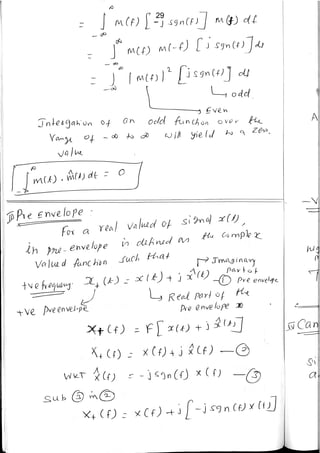 29
= ∫_{-∞}^{∞} M(f) [-j sgn(f)] M(f) df
= ∫_{-∞}^{∞} M(f) M(-f) [j sgn(f)] df
= ∫_{-∞}^{∞} |M(f)|² [j sgn(f)] df
↳ odd.
→ Even
Integration of an odd function over the
range of -∞ to ∞ will yield to a zero.
value
∫_{-∞}^{∞} m(t) . m̂(t) dt = 0
Pre Envelope -
For a real valued of signal x(t),
in pre-envelope is defined as the complex
valued function such that
→ Imaginary
part of
+ve frequency: x₊(t) = x(t) + j x̂(t) —① pre envelope
+ve Preenvelope ↳ Real part of the
pre envelope
X₊(f) = F[x(t) + j x̂(t)]
X₊(f) = X(f) + j X̂(f) —②
WKT X̂(f) = -j sgn(f) X(f) —③
Sub ③ in ②
X₊(f) = X(f) + j[-j sgn(f) X(f)]
A
Can
Si
a